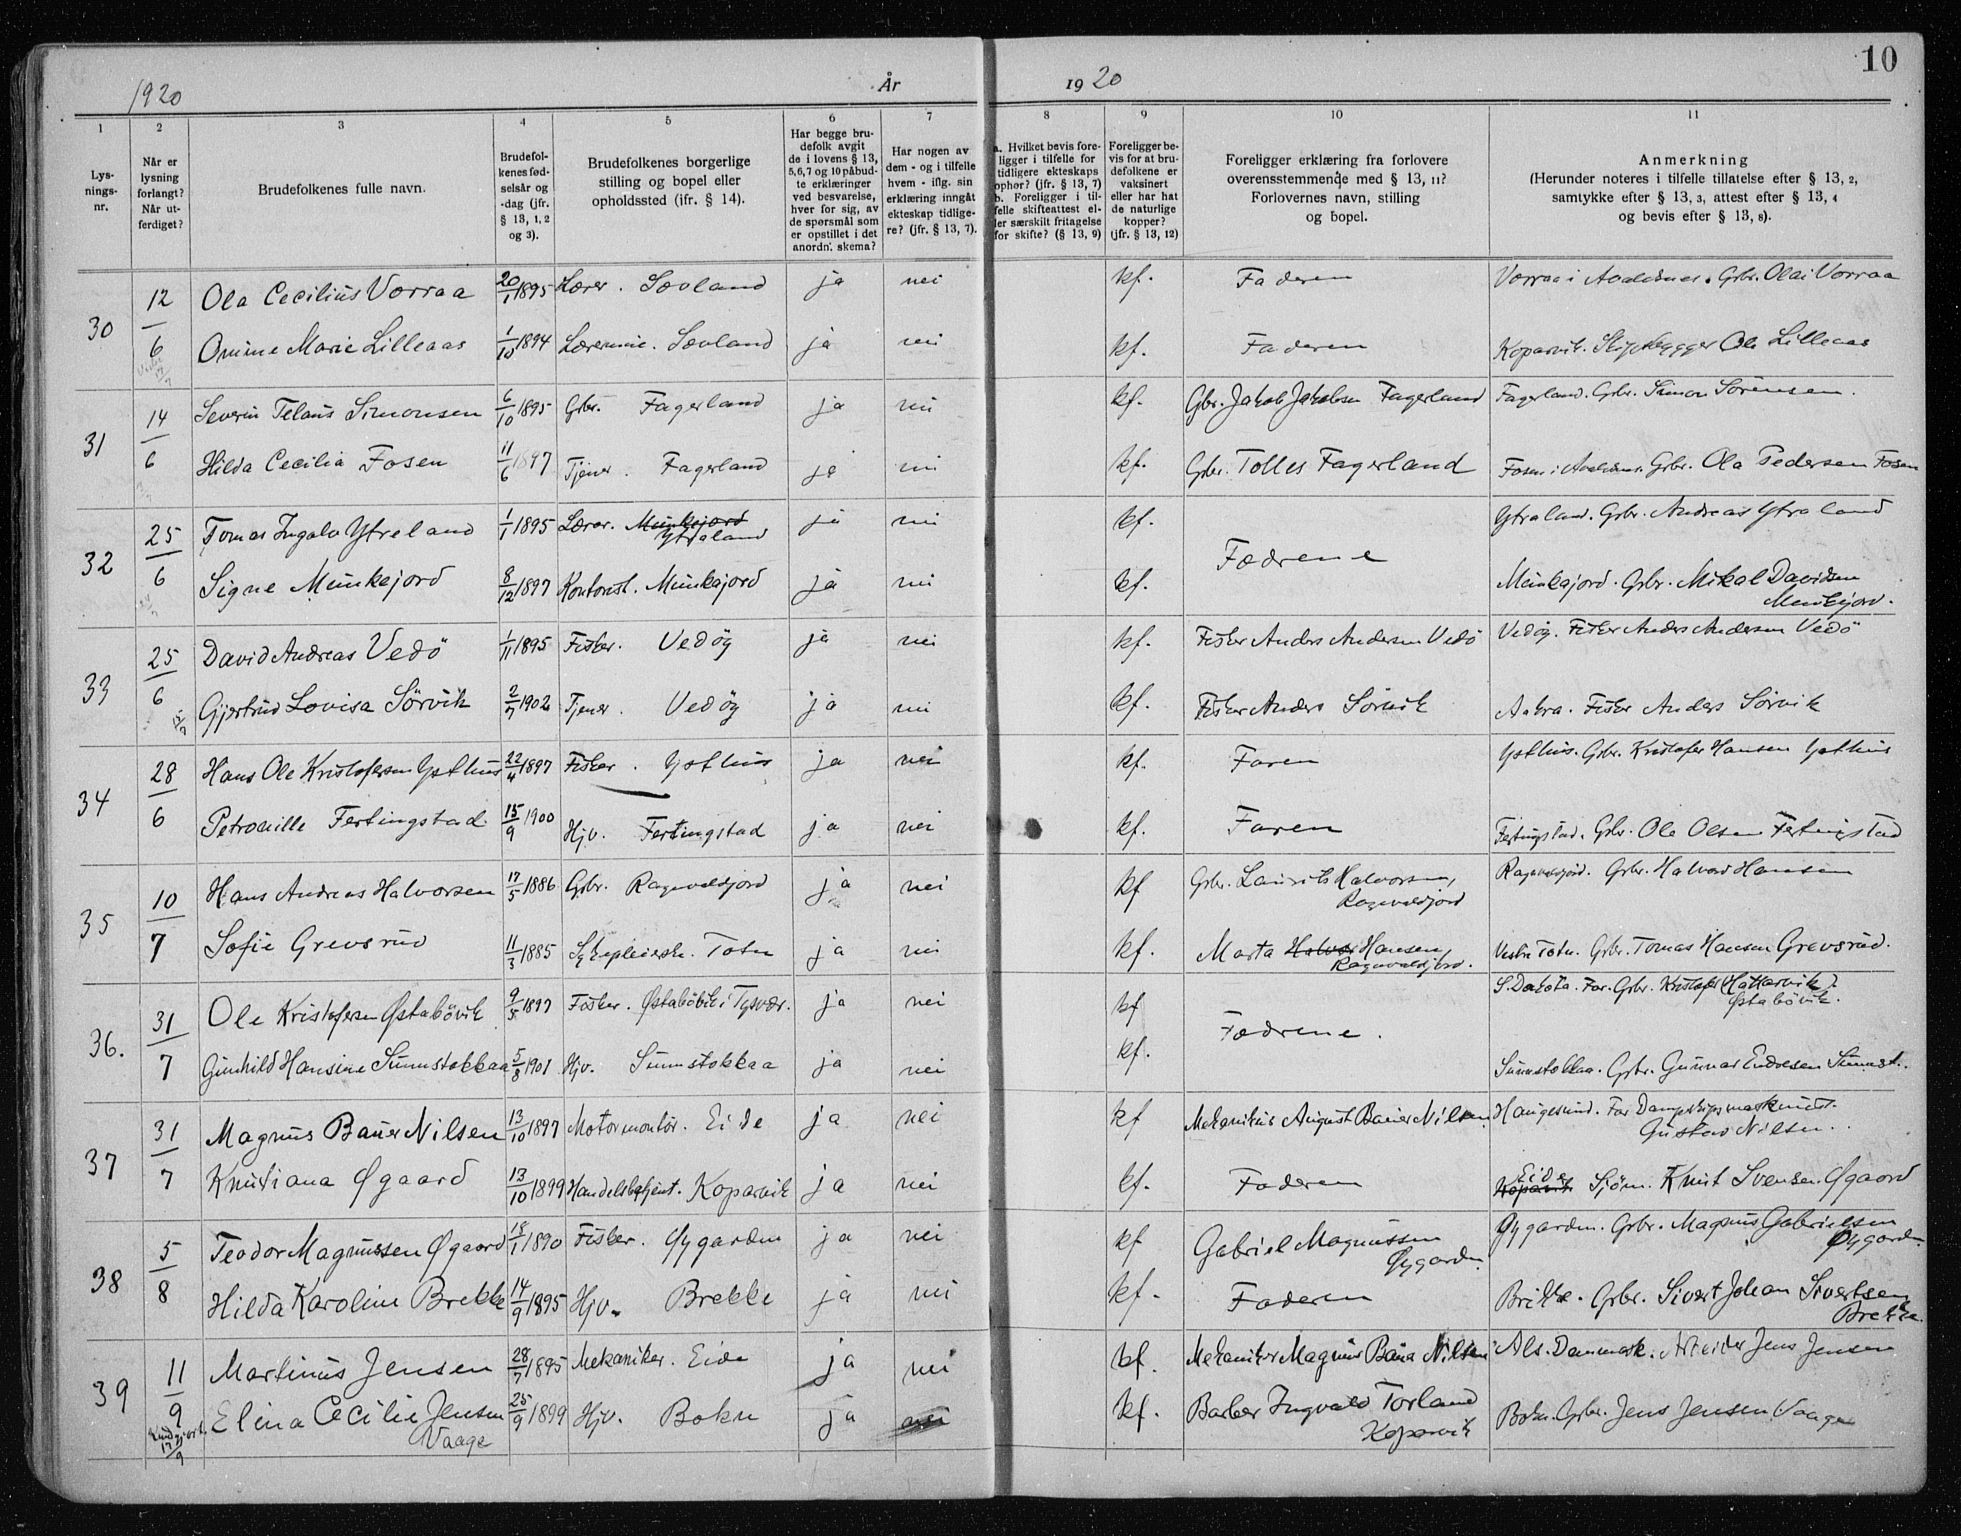 10
1920 År 1920
1 2 3 4 5 6 7 8 9 10 11
Lys-
nings-
nr.
Når er
lysning
forlangt?
Når ut-
ferdiget?
Brudefolkenes fulle navn.
Brudefol-
kenes fød-
selsår og
-dag (jfr.
§ 13, 1, 2
og 3).
Brudefolkenes borgerlige
stilling og bopel eller
opholdssted (jfr. § 14).
Har begge bru-
defolk avgit
de i lovens § 13,
5, 6, 7 og 10 påbud-
te erklæringer
ved besvarelse,
hver for sig, av
de spørsmål som
er opstillet i det
anordn. skema?
Har nogen av
dem - og i tilfelle
hvem - iflg. sin
erklæring inngåt
ekteskap tidlige-
re? (jfr. § 13, 7).
a. Hvilket bevis fore-
ligger i tilfelle for
tidligere ekteskaps
ophør? (jfr. § 13, 7)
b. Foreligger i til-
felle skifteattest el-
ler særskilt fritagelse
for skifte? (§ 13, 9)
Foreligger be-
vis for at bru-
defolkene er
vaksinert
eller har hat
de naturlige
kopper?
(jfr. § 13, 12)
Foreligger erklæring fra forlovere
overensstemmende med § 13, 11?
Forlovernes navn, stilling
og bopel.
Anmerkning
(Herunder noteres i tilfelle tillatelse efter § 13, 2,
samtykke efter § 13, 3, attest efter § 13, 4
og bevis efter § 13, 8).
30 12/6 Ola Cecilius Vorraa 20/1 1895 Lærer. Sævland ja nei kf. Faderen Vorraa i Avaldsnes. Grbr. Olai Vorraa
Omine Marie Lilleaas 1/10 1894 Lærerinne. Sævland ja nei kf. Faderen Kopervik. Skipsbygger Ole Lilleaas
31 14/6 Severin Telaus Simonsen 6/10 1895 Grbr. Fagerland ja nei kf. Gbr. Jakob Jakobsen Fagerland Fagerland. Grbr. Simon Sørensen.
Hilda Cecilia Fosen 11/6 1897 Tjener. Fagerland ja nei kf. Grbr. Tolles Fagerland Fosen i Avaldsnes. Grbr. Ola Pedersen Fosen
32 25/6 Tomas Ingolv Ytreland 1/1 1895 Lærer. Munkejord ja nei kf. Ytraland. Grbr. Andreas Ytraland
Ytraland
Fædrene
Signe Munkejord 8/12 1897 Kontorist. Munkajord ja nei kf. Munkajord. Grbr. Mikal Davidsen
Munkejord.
33 25/6 David Andreas Vedö 1/11 1895 Fisker. Vedöy ja nei kf. Fisker Anders Andersen Vedö Vedöy. Fisker Anders Andersen Vedö
15/7 Gjertrud Lovisa Sörvik 2/7 1902 Tjener. Vedöy ja nei kf. Fisker Anders Sörvik Aakra. Fisker Anders Sörvik
34 28/6 Hans Ole Kristofersen Ysthus 22/4 1897 Fisker. Ysthus ja nei kf. Faren Ysthus. Grbr. Kristofer Hansen Ysthus
Petronille Fertingstad 15/9 1900 Hjv. Fertingstad ja nei kf. Faren Fertingstad. Grbr. Ole Olsen Fertingstad
35 10/7 Hans Andreas Halvorsen 17/5 1886 Grbr. Ragnvaldjord ja nei kf Grbr. Laurits Halvorsen, Ragnvaldjord. Grbr. Halvard Hansen
Ragnvaldjord
Sofie Grevsrud 11/3 1885 Sykepleierske. Toten ja nei kf. Marta Halvor Hansen, Vestre Toten. Grbr. Tomas Hansen Grevsrud.
Ragnvaldjord.
36. 31/7 Ole Kristofersen Østabövik 9/5 1897 Fisker. Østabövik i Tysvær. ja nei kf S. Dakota. Far. Grbr. Kristofer (Hattarvik)
Østabövik.
Fædrene.
Gunhild Hansine Sunnstokkaa 5/8 1901 Hjv. Sunnstokkaa ja nei kf. Sunnstokkaa. Grbr. Gunnar Endresen Sunnst.
37 31/7 Magnus Bauer Nilsen 13/10 1897 Motormontör. Eide ja nei kf Mekanikus August Bauer Nilsen. Haugesund. Far Dampskipsmaskinist.
Gustav Nilsen.
Kristiana Øgaard 13/10 1899 Handelsbetjent. Kopervik ja nei kf. Faderen Kopervik Eide Sjöm. Knut Svensen Øgaard
38 5/8 Teodor Magnussen Øgaard 18/1 1890 Fisker. Øygarden ja nei kf Gabriel Magnussen Øygarden. Grbr. Magnus Gabrielsen
Øygarden. Øygarden.
Hilda Karoline Brekke 14/9 1895 Hjv. Brekke ja nei kf. Faderen Brekke. Grbr. Sivert Johan Sivertsen
Brekke.
39 11/9 Martinus Jensen 28/7 1895 Mekaniker. Eide ja nei kf. Mekaniker Magnus Bauer Nilsen Als. Danmark. Arbeider Jens Jensen
Elina Cecilie Jensen 25/9 1899 Hjv. Bokn ja nei kf. Barber Ingvald Torland Bokn. Grbr. Jens Jensen Vaage
Vaage Kopervik
17/9